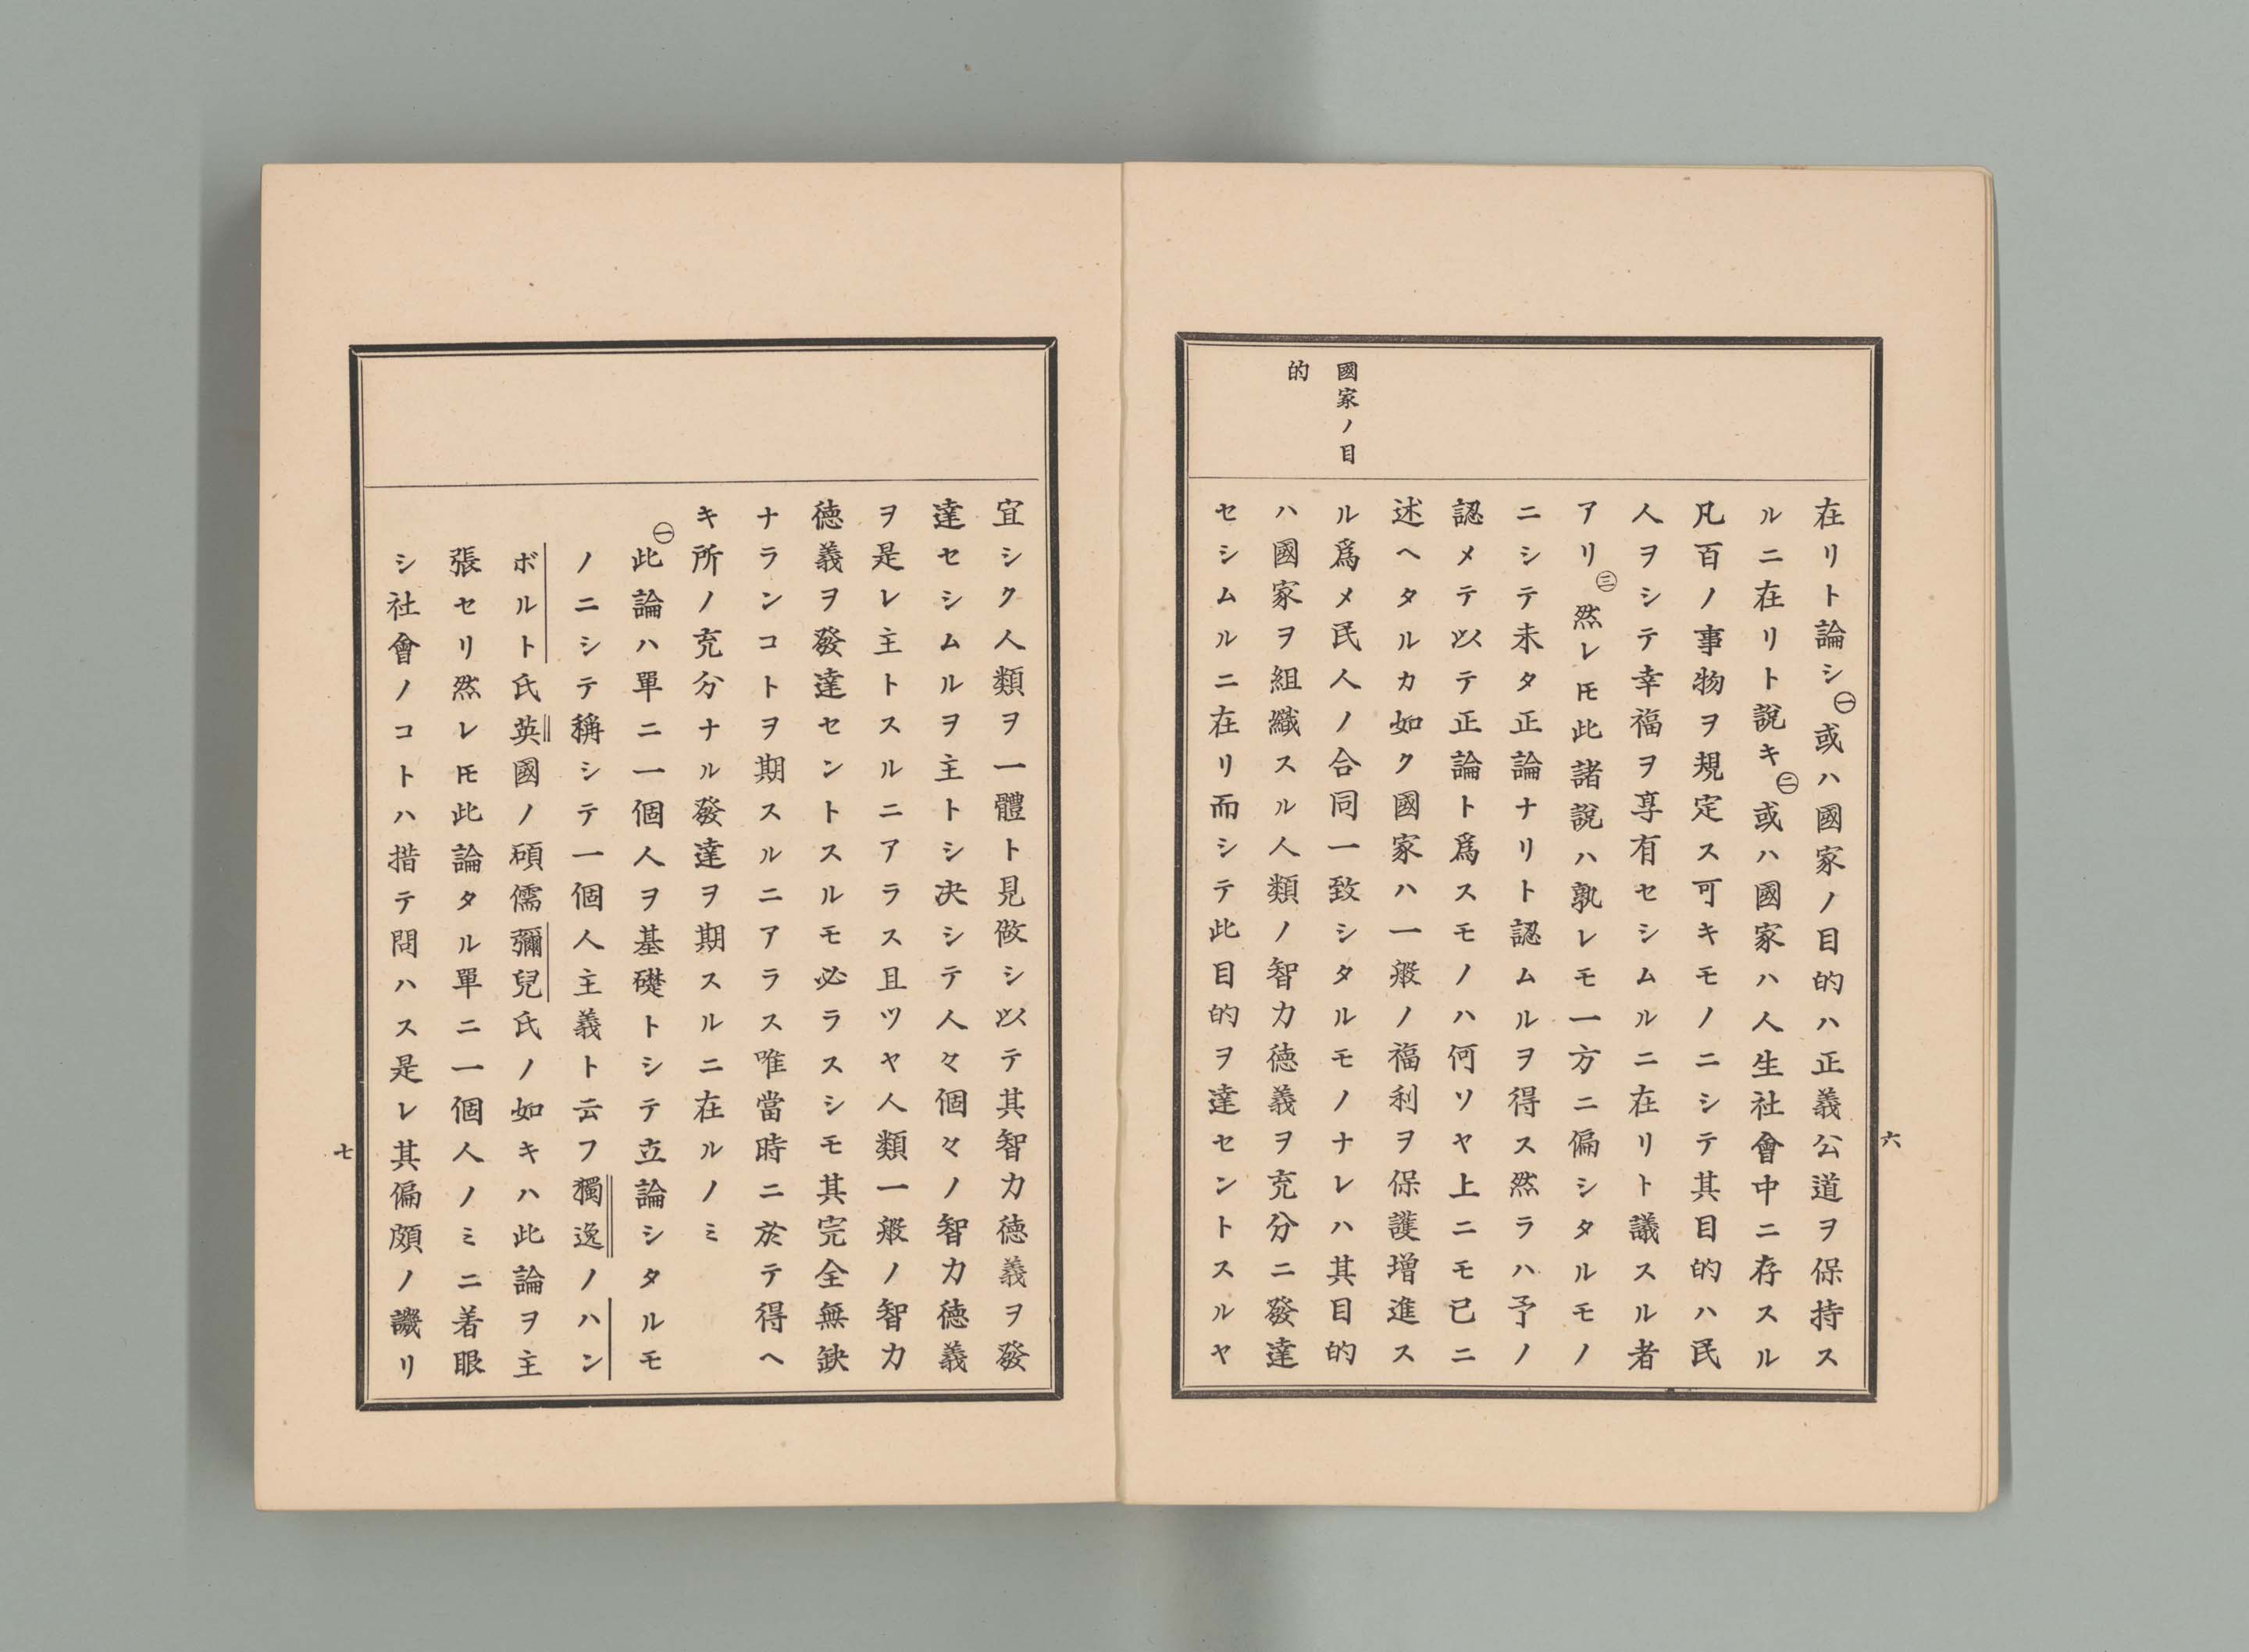 六
國家ノ目
的
在リト論シ㊀或ハ國家ノ目的ハ正義公道ヲ保持ス
ルニ在リト說キ㊁或ハ國家ハ人生社會中ニ存スル
凡百ノ事物ヲ規定ス可キモノニシテ其目的ハ民
人ヲシテ幸福ヲ享有セシムルニ在リト議スル者
アリ㊂然レ𪜈此諸說ハ孰レモ一方ニ偏シタルモノ
ニシテ未タ正論ナリト認ムルヲ得ス然ラハ予ノ
認メテ以テ正論ト爲スモノハ何ソヤ上ニモ已ニ
述ヘタルカ如ク國家ハ一般ノ福利ヲ保護增進ス
ル爲メ民人ノ合同一致シタルモノナレハ其目的
ハ國家ヲ組織スル人類ノ智力德義ヲ充分ニ發達
セシムルニ在リ而シテ此目的ヲ達セントスルヤ
宜シク人類ヲ一體ト見做シ以テ其智力德義ヲ發
達セシムルヲ主トシ决シテ人々個々ノ智力德義
ヲ是レ主トスルニアラス且ツヤ人類一般ノ智力
德義ヲ發達セントスルモ必ラスシモ其完全無缺
ナランコトヲ期スルニアラス唯當時ニ於テ得ヘ
キ所ノ充分ナル發達ヲ期スルニ在ルノミ
㊀此論ハ單ニ一個人ヲ基礎トシテ立論シタルモ
ノニシテ稱シテ一個人主義ト云フ獨逸ノハン
ボルト氏英國ノ碩儒彌兒氏ノ如キハ此論ヲ主
張セリ然レ𪜈此論タル單ニ一個人ノミニ着眼
シ社會ノコトハ措テ問ハス是レ其偏頗ノ譏リ
七